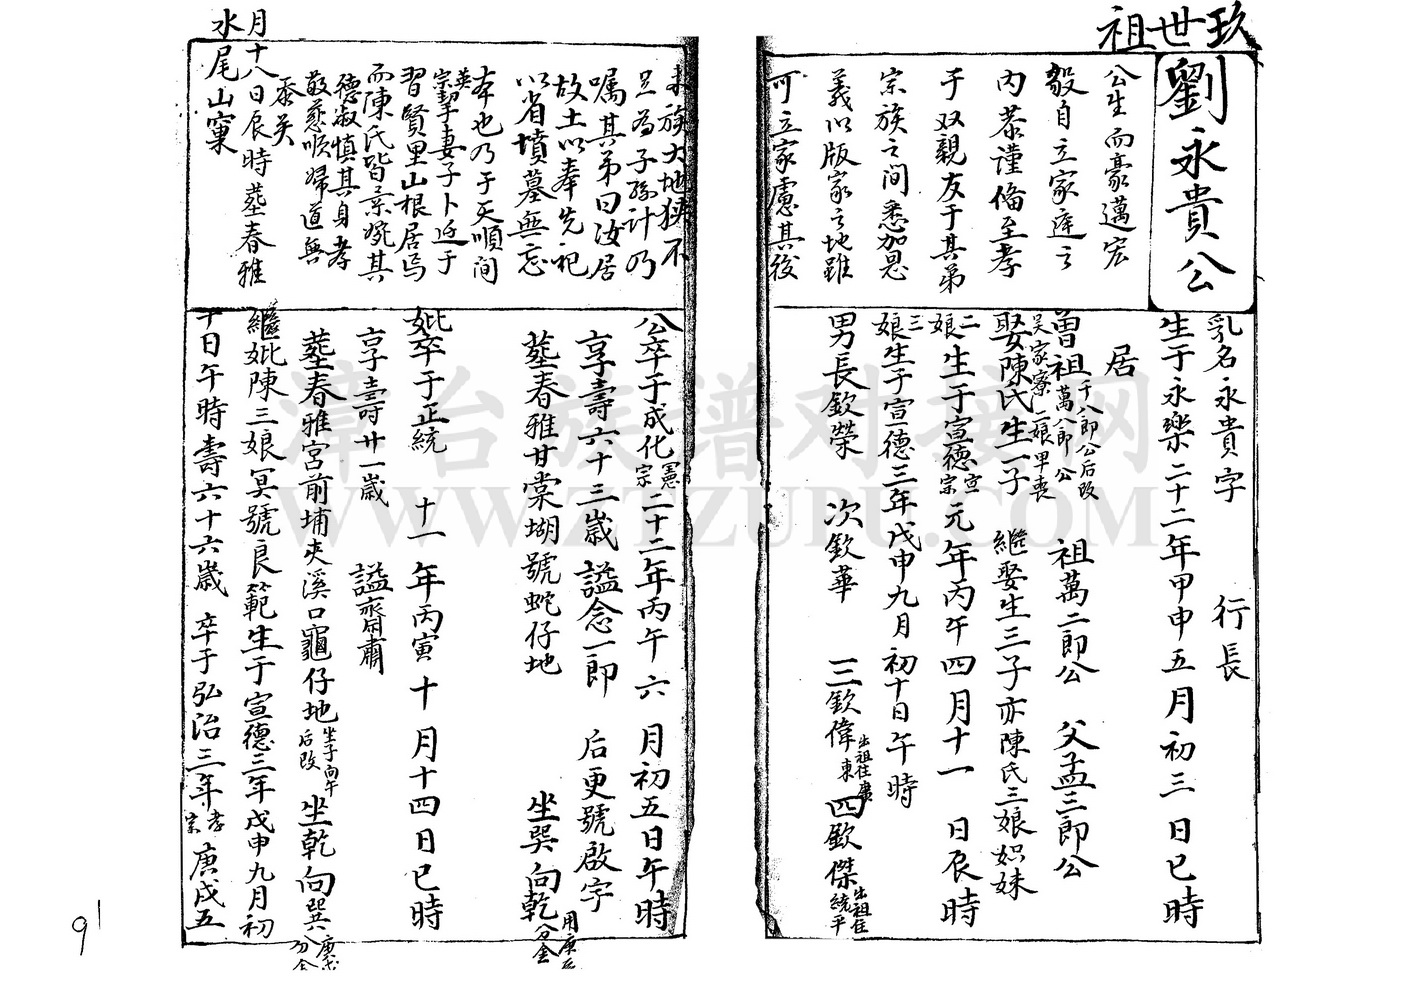 玖世祖
劉永貴公
公生而豪邁宏
毅自立家庭之
內恭謹備至孝
于双親友于其弟
宗族之間悉加恩
義以版家之地雖
可立家慮其後
乳名永貴字 行長
生于永樂二十二年甲申五月初三日巳時
居
曾祖千八郎公后改萬八郎公 祖萬二郎公 父孟三郎公
吴家寮一娘早喪
娶陳氏生一子 繼娶生三子亦陳氏三娘姒妹
二娘生于宣德宣宗元年丙午四月十一日辰時
三娘生于宣德三年戊申九月初十日午時
男長欽榮 次欽華 三欽偉出祖住廣東 四欽傑出祖住統平
来族大地狹不
足為子孫計乃
囑其弟曰汝居
故土以奉先祀
以省墳墓無忘
本也乃于天順間英宗
挈妻子卜近于
習賢里山根居焉
而陳氏皆柔婉其
德淑慎其身孝
敬慈順婦道無
忝矣
公卒于成化憲宗二十二年丙午六月初五日午時
享壽六十三歲 謚念一郎 后更號啟字
塟春雅甘棠坳號蛇仔地 坐巽向乾分金
妣卒于正統十一年丙寅十月十四日巳時
享壽廿一歲 謚齊肅
塟春雅宮前埔夾溪口龜仔地坐子向午后改 坐乾向巽分金
繼妣陳三娘冥號良範生于宣德三年戊申九月初
十日午時壽六十六歲 卒于弘治三年孝宗庚戌五
月十八日辰時塟春雅
水尾山窠
91
漳台族谱对接网
WWW.ZTZUPU.COM